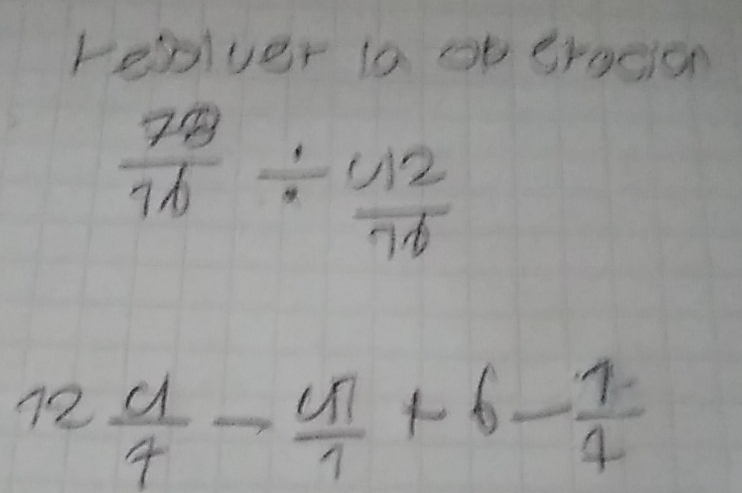 resolver la operacion
78/16 ÷ 42/16
12 4/4 - 41/1 + 6 - 1/4